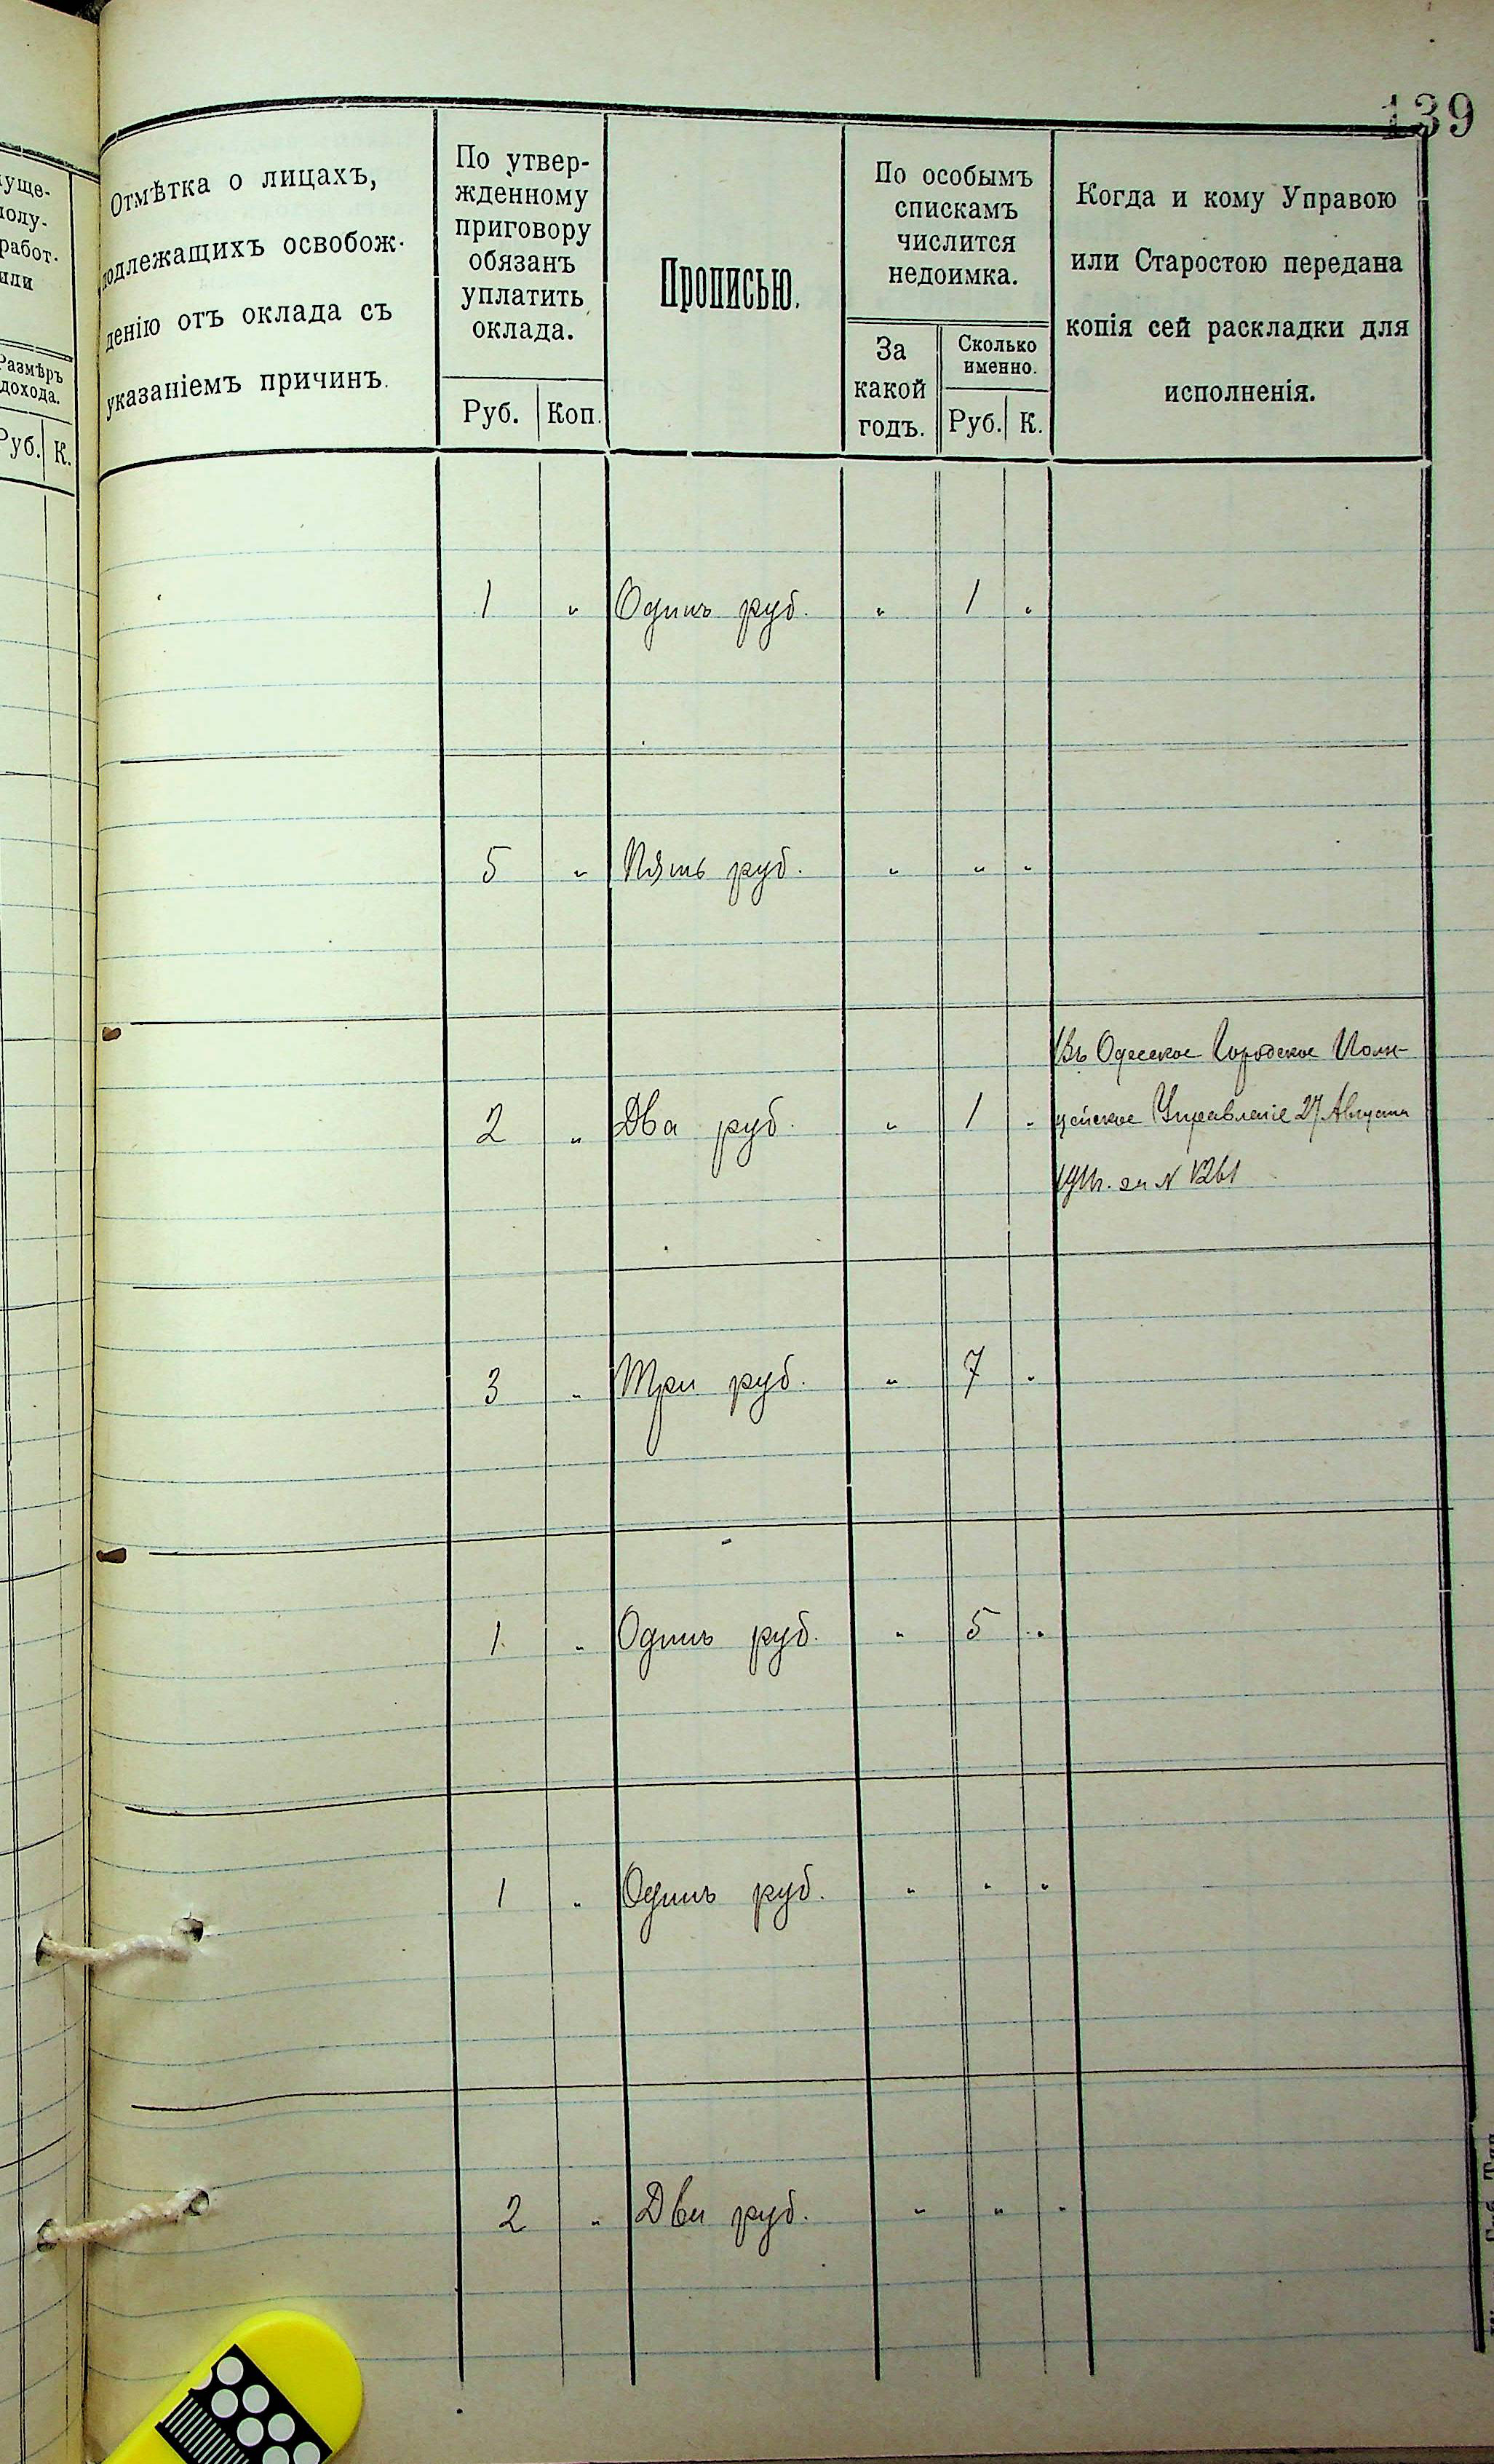 139
уще-
полу-
работ-
или
Размѣръ
дохода.
Руб. К.
Отмѣтка о лицахъ,
подлежащихъ освобож-
денію отъ оклада съ
указаніемъ причинъ.
По утвер-
жденному
приговору
обязанъ
уплатить
оклада.
Руб. Коп.
Прописью.
По особымъ
спискамъ
числится
недоимка.
За
какой
годъ.
Сколько
именно.
Руб. К.
Когда и кому Управою
или Старостою передана
копія сей раскладки для
исполненія.
1 „ Одинъ руб. „ 1 „
5 „ Пять руб. „ „ „
Въ Одесское Городское Поли-
2 „ Два руб. „ 1 „ цейское Управленіе 27 Августа
за № 1261
3 „ Три руб. „ 7 „
1 „ Одинъ руб. „ 5 „
1 „ Одинъ руб. „ „ „
2 „ Два руб. „ „ „